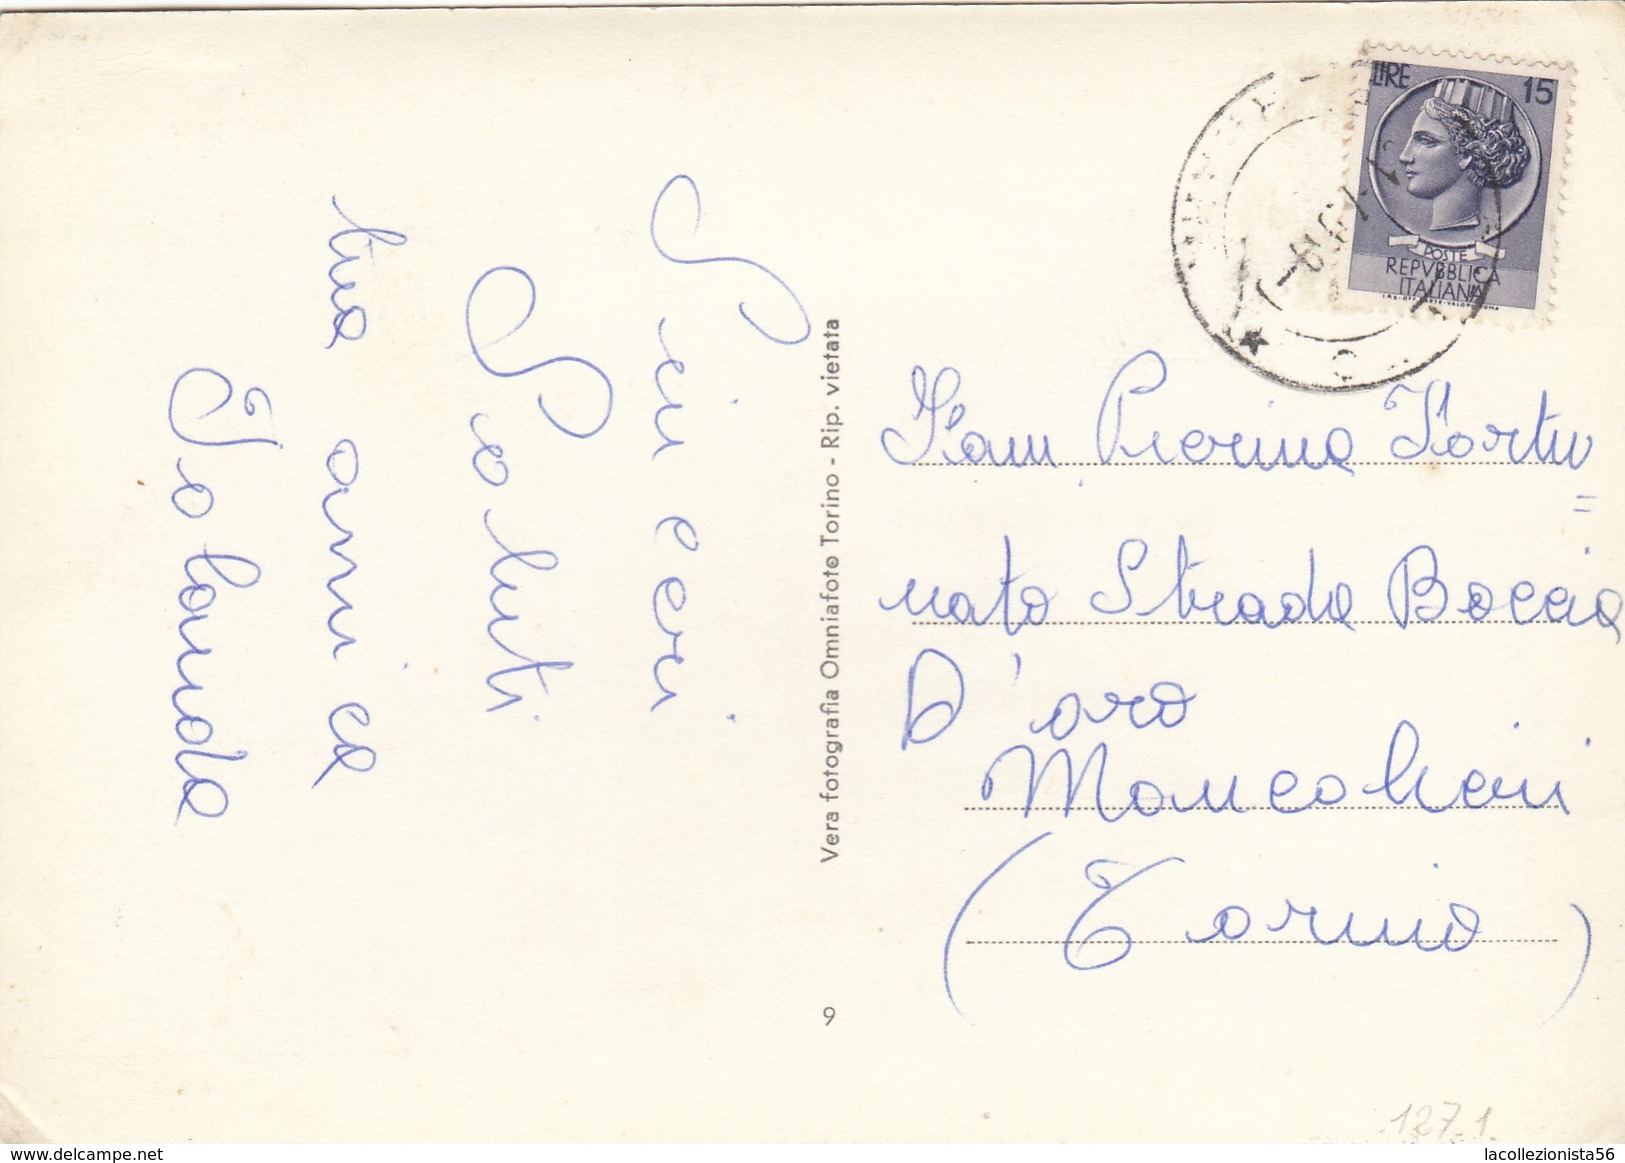 Sinceri
Saluti
tua amica
Iolanda
Vera fotografia Omniafoto Torino - Rip. vietata
9
LIRE 15
POSTE
REPVBBLICA
ITALIANA
Pierina Fortu
=
nato Strada Boccia
D'oro
Moncalieri
(Torino)
127.1.
delcampe.net
lacollezionista56